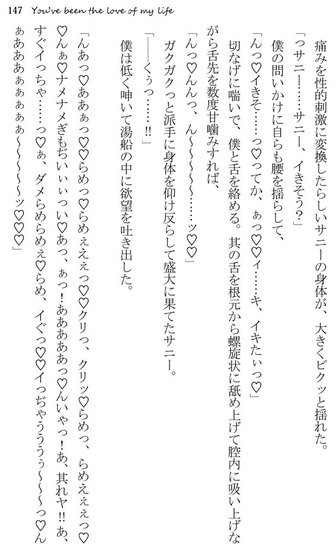 147 You've been the love of my life
痛みを性的刺激に変換したらしいサニーの身体が、大きくビクッと揺れた。
「っサニー……サニー、イきそう？」
僕の問いかけに自らも腰を揺らして、
「んっ♡イきそ……っ♡ってか、ぁっ♡♡ィ……キ、イキたぃっ♡」
切なげに喘いで、僕と舌を絡める。其の舌を根元から螺旋状に舐め上げて腔内に吸い上げな
がら舌先を数度甘噛みすれば、
「んっ♡♡んっ、ん～～～～……ッ♡♡」
ガクガクっと派手に身体を仰け反らして盛大に果てたサニー。
「――くぅっ……!!」
僕は低く呻いて湯船の中に欲望を吐き出した。
「んあっ♡ああぁっ♡♡らめっ♡らめぇぇぇっ♡♡クリっ、クリッ♡らめっ、らめえぇぇっ♡
♡んぁ♡ナメナメぎもぢいぃぃっい♡あっ、ぁっ！ああああぁっ♡んいゃっ！あ、其れヤ!!あ、
すぐイっちゃ……っ♡ぁ、ダメらめらめぇ♡らめ、イぐっ♡♡イっぢゃうううぅ～～～っ♡ん
ぁああぁああぁぁぁぁ～～～～ッ♡♡♡」